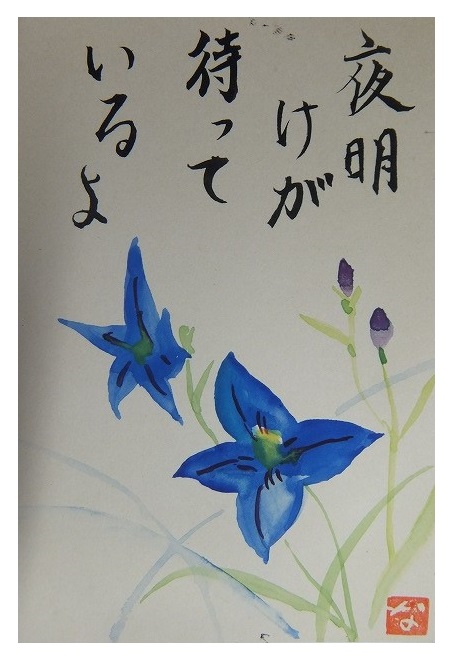 夜明
けが
待って
いるよ
な